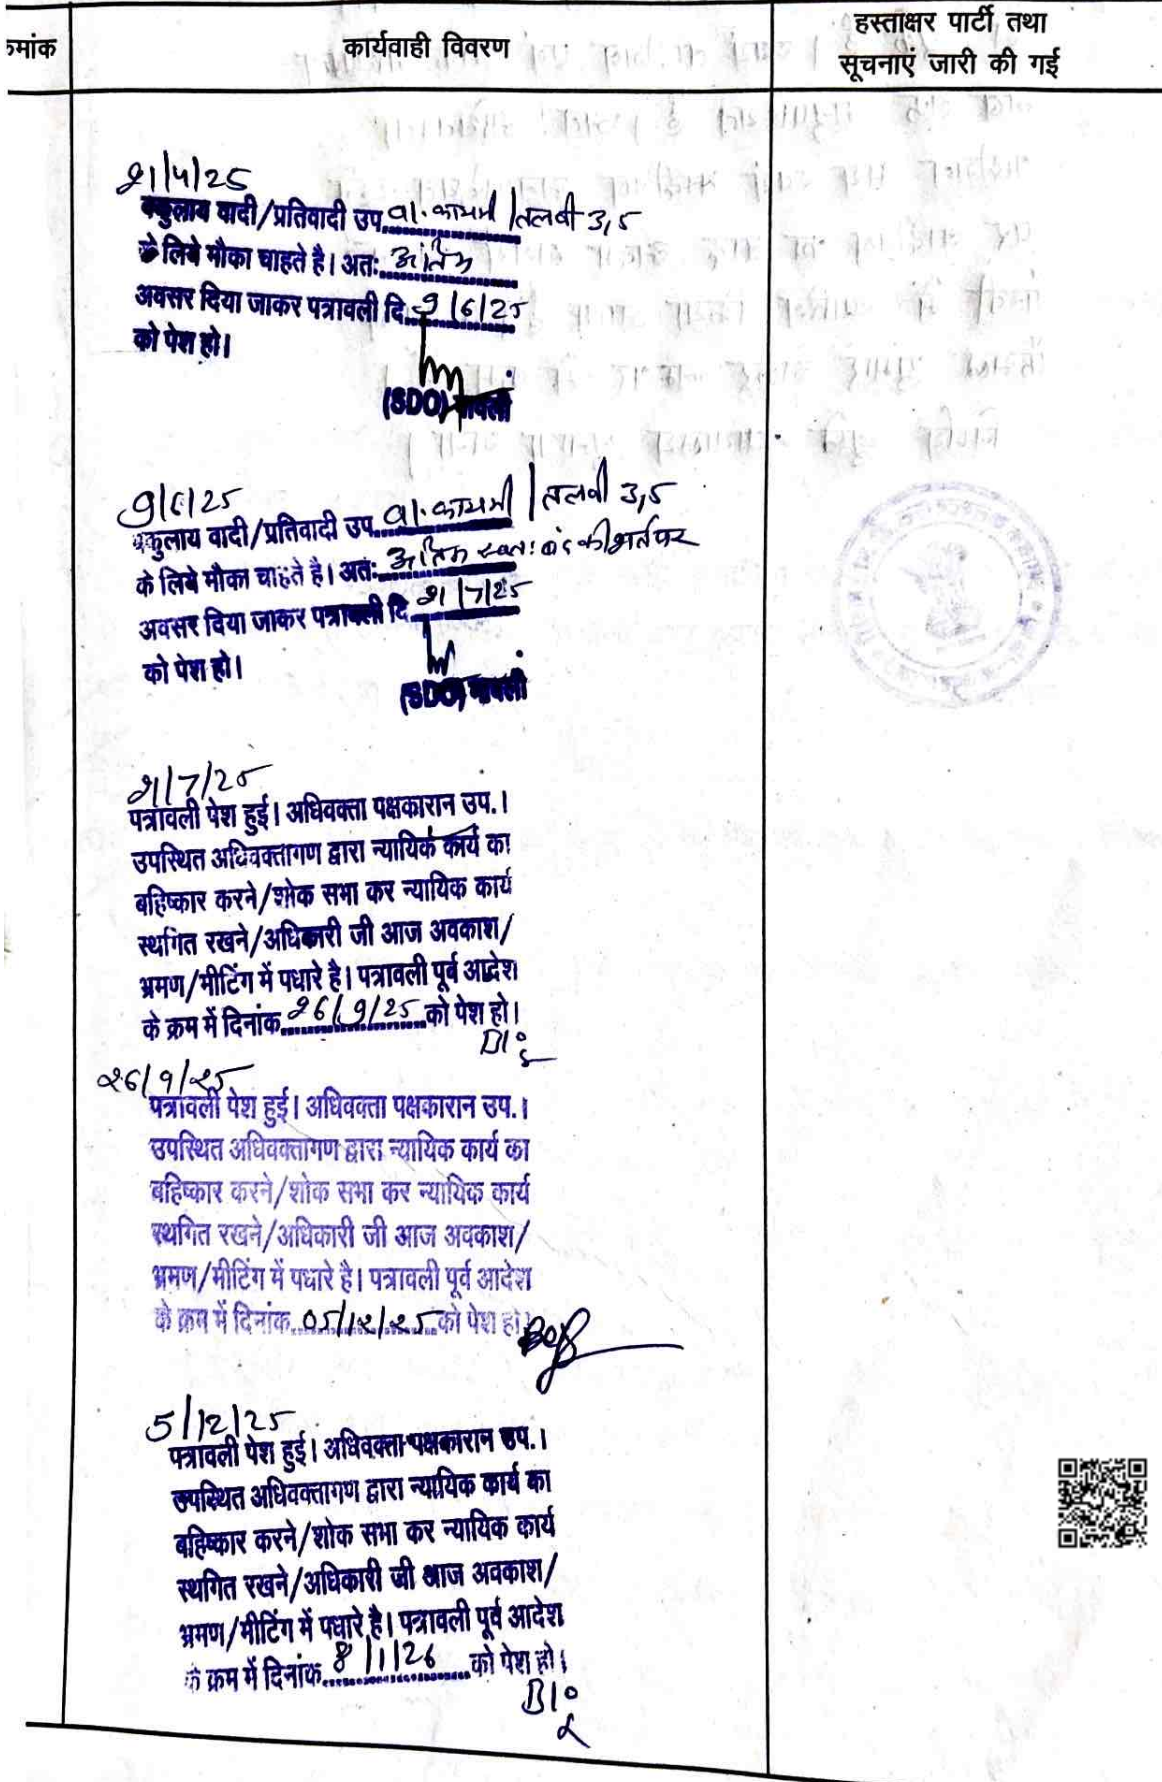 क्रमांक
कार्यवाही विवरण
हस्ताक्षर पार्टी तथा
सूचनाएं जारी की गई
21/4/25
वकुलाय वादी/प्रतिवादी उप. वा. कायमी/तलबी 3,5
के लिये मौका चाहते है। अतः अंतिम
अवसर दिया जाकर पत्रावली दि. 9/6/25
को पेश हो।
(SDO) मावली
9/6/25
वकुलाय वादी/प्रतिवादी उप. वा. कायमी/तलबी 3,5
के लिये मौका चाहते है। अतः अंतिम स्वतः बंद की शर्त पर
अवसर दिया जाकर पत्रावली दि. 21/7/25
को पेश हो।
(SDO) मावली
21/7/25
पत्रावली पेश हुई। अधिवक्ता पक्षकारान उप.।
उपस्थित अधिवक्तागण द्वारा न्यायिक कार्य का
बहिष्कार करने/शोक सभा कर न्यायिक कार्य
स्थगित रखने/अधिकारी जी आज अवकाश/
भ्रमण/मीटिंग में पधारे है। पत्रावली पूर्व आदेश
के क्रम में दिनांक 26/9/25 को पेश हो।
26/9/25
पत्रावली पेश हुई। अधिवक्ता पक्षकारान उप.।
उपस्थित अधिवक्तागण द्वारा न्यायिक कार्य का
बहिष्कार करने/शोक सभा कर न्यायिक कार्य
स्थगित रखने/अधिकारी जी आज अवकाश/
भ्रमण/मीटिंग में पधारे है। पत्रावली पूर्व आदेश
के क्रम में दिनांक 05/12/25 को पेश हो।
5/12/25
पत्रावली पेश हुई। अधिवक्ता पक्षकारान उप.।
उपस्थित अधिवक्तागण द्वारा न्यायिक कार्य का
बहिष्कार करने/शोक सभा कर न्यायिक कार्य
स्थगित रखने/अधिकारी जी आज अवकाश/
भ्रमण/मीटिंग में पधारे है। पत्रावली पूर्व आदेश
के क्रम में दिनांक 8/1/26 को पेश हो।